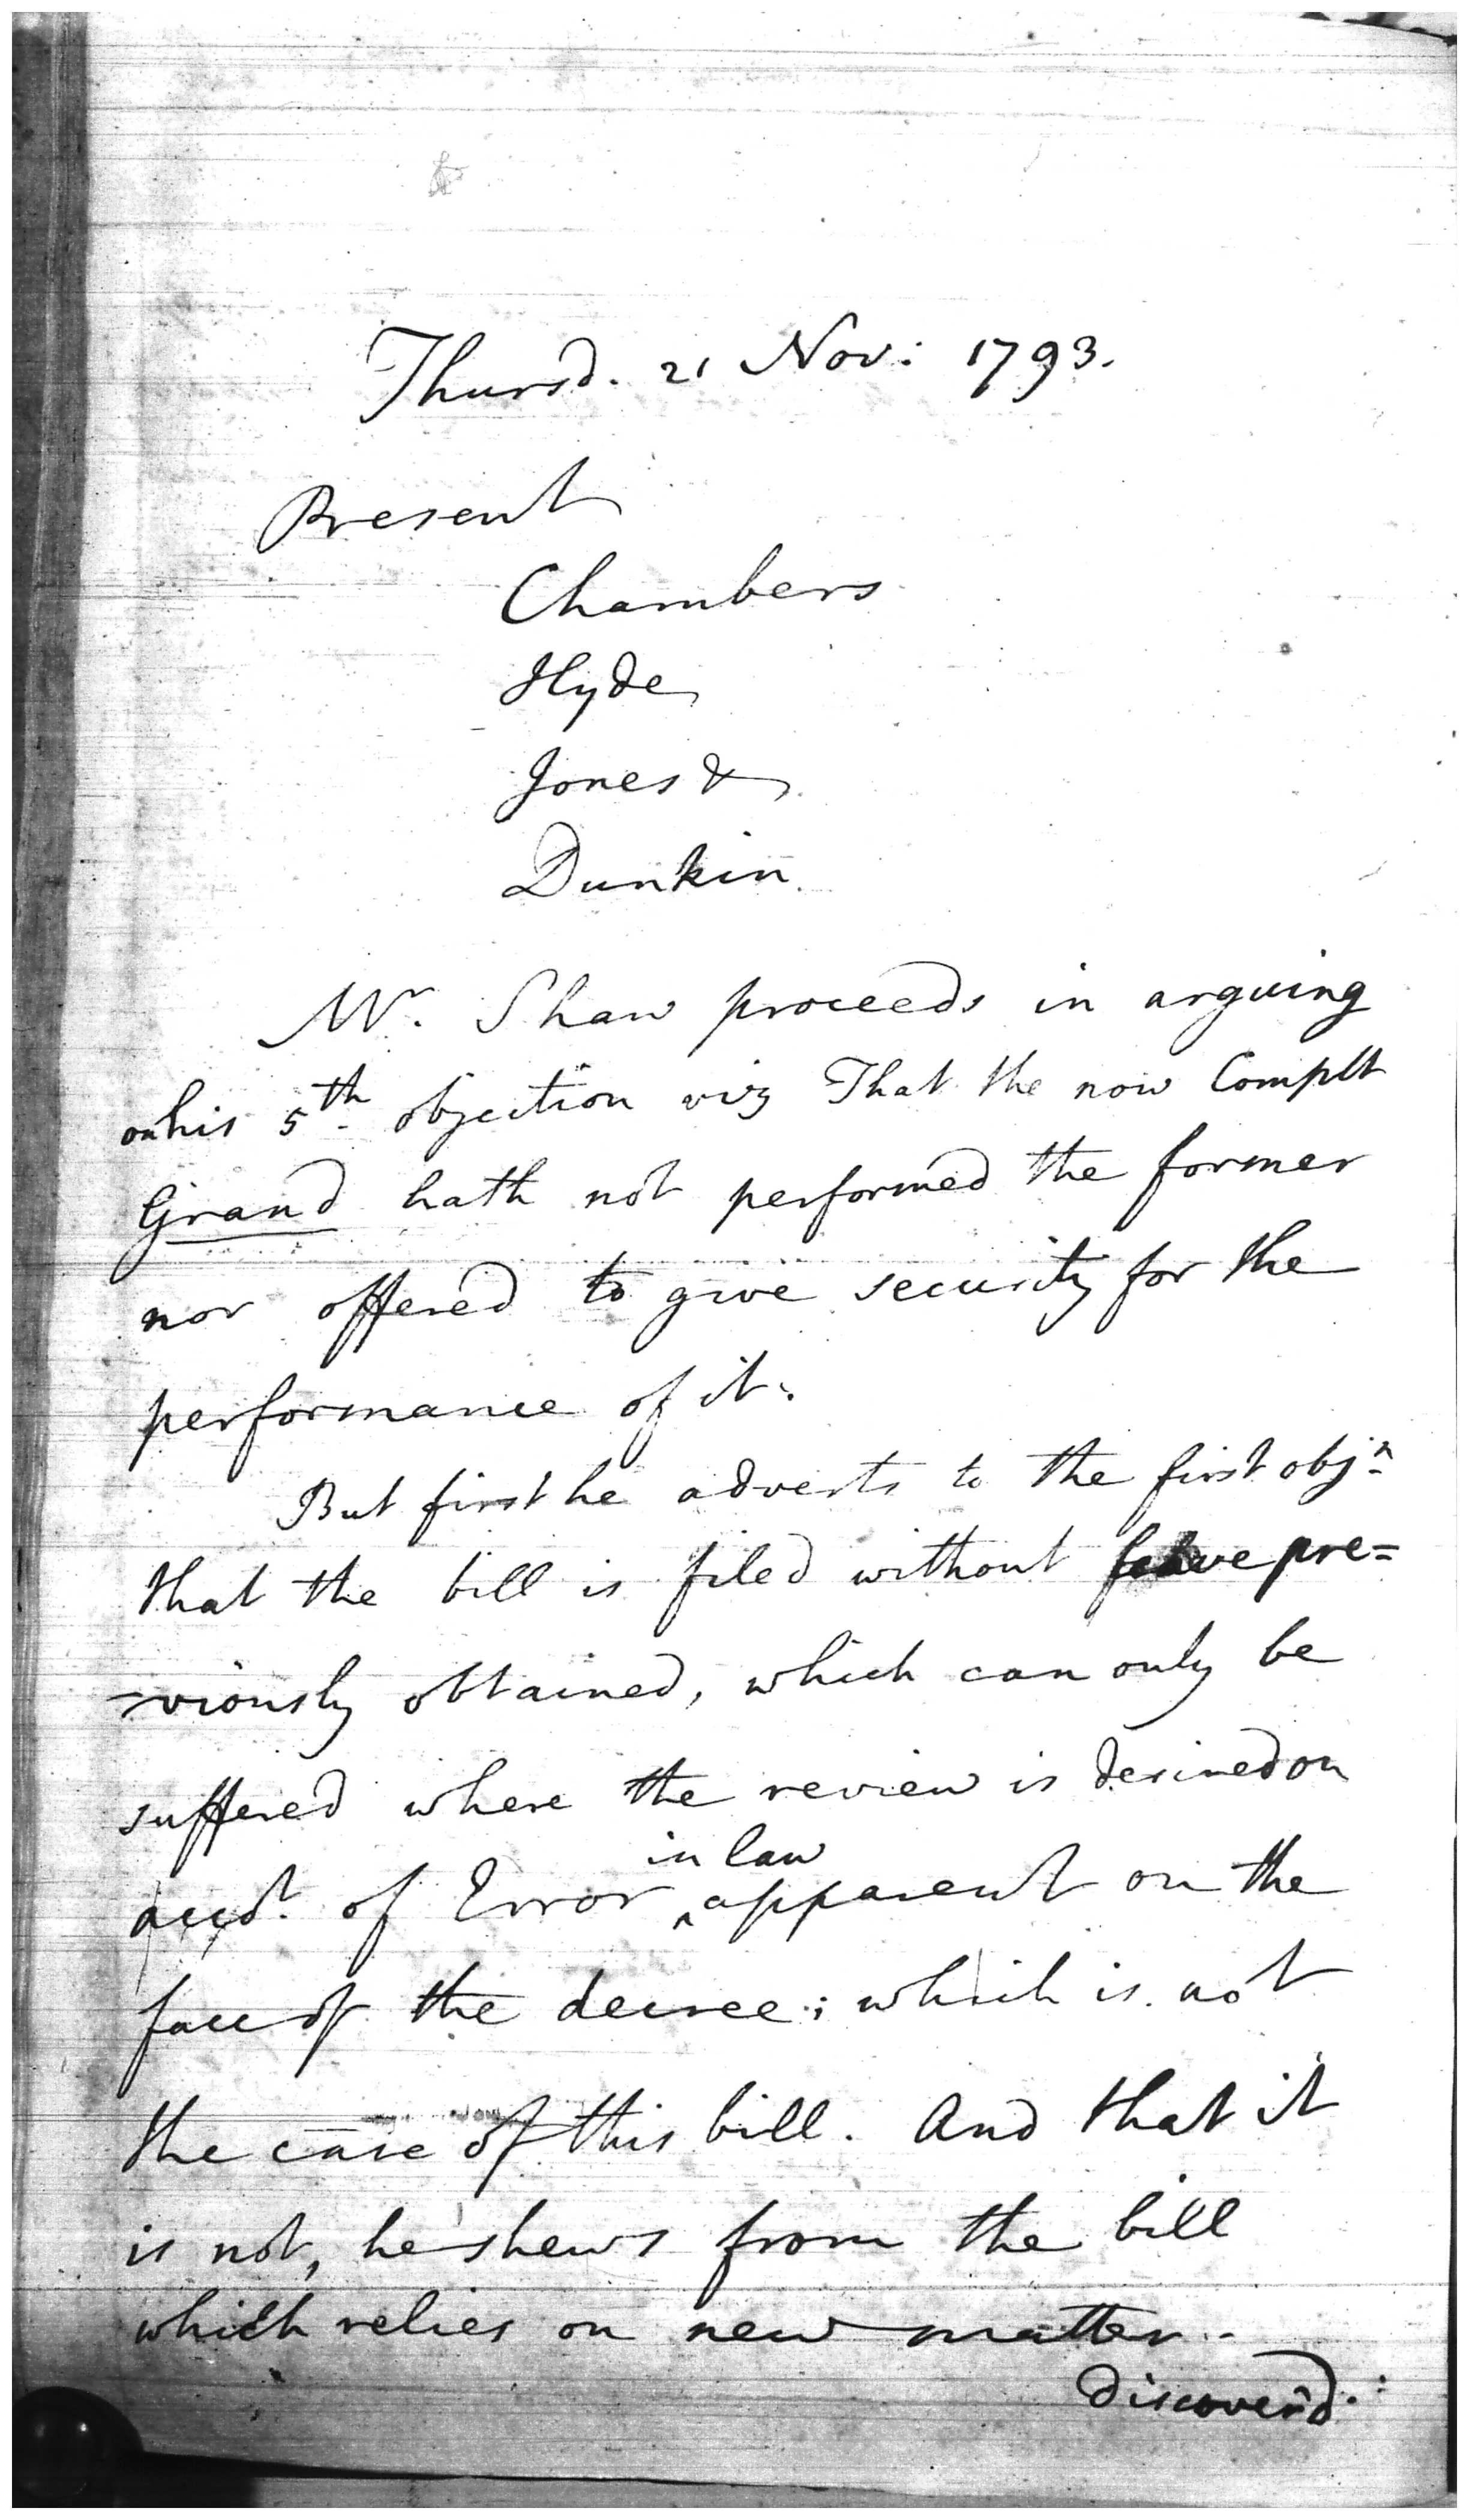 Thursd. 21 Nov: 1793.
Present
Chambers
Hyde
Jones &
Dunkin
Mr. Shaw proceeds in arguing
on his 5th objection viz That the now Complt
Grand hath not performed the former
nor offered to give security for the
performance of it.
But first he adverts to the first objn
that the bill is filed without leave pre=
=viously obtained, which can only be
suffered where the review is desired on
acct. of Error in law apparent on the
face of the decree; which is not
the case of this bill. And that it
is not, he shews from the bill
which relies on new matter
discover'd.